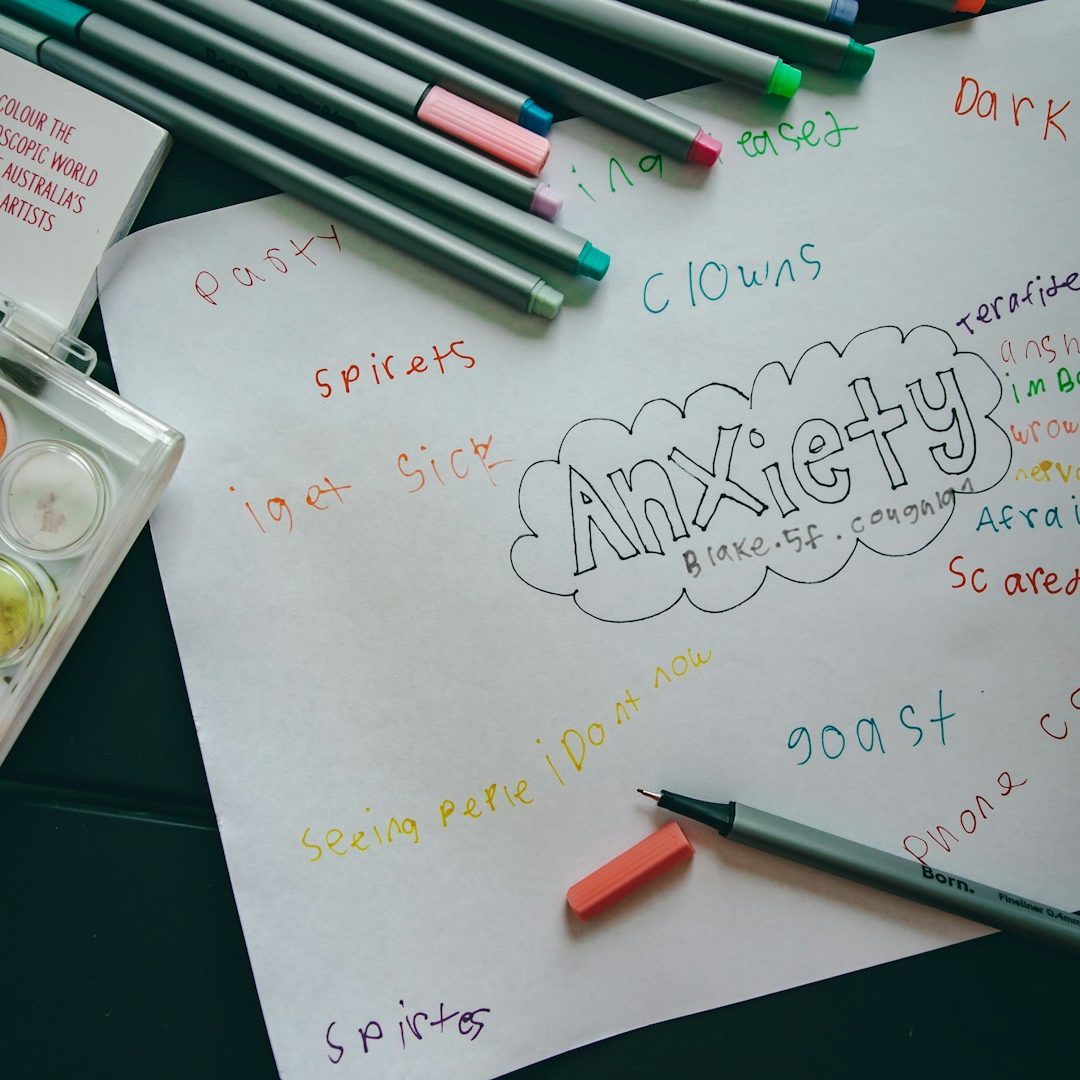 COLOUR THE
OSCOPIC WORLD
AUSTRALIA'S
ARTISTS
Born.
Dark
ing eased
party
clowns
spirets
terafide
iget sick
Anxiety
Blake.5f.coughlan
im
nerv
Afrai
scared
seeing peple i Dont now
goast
phone
Born.
Fineliner 0.4mm
spirtes